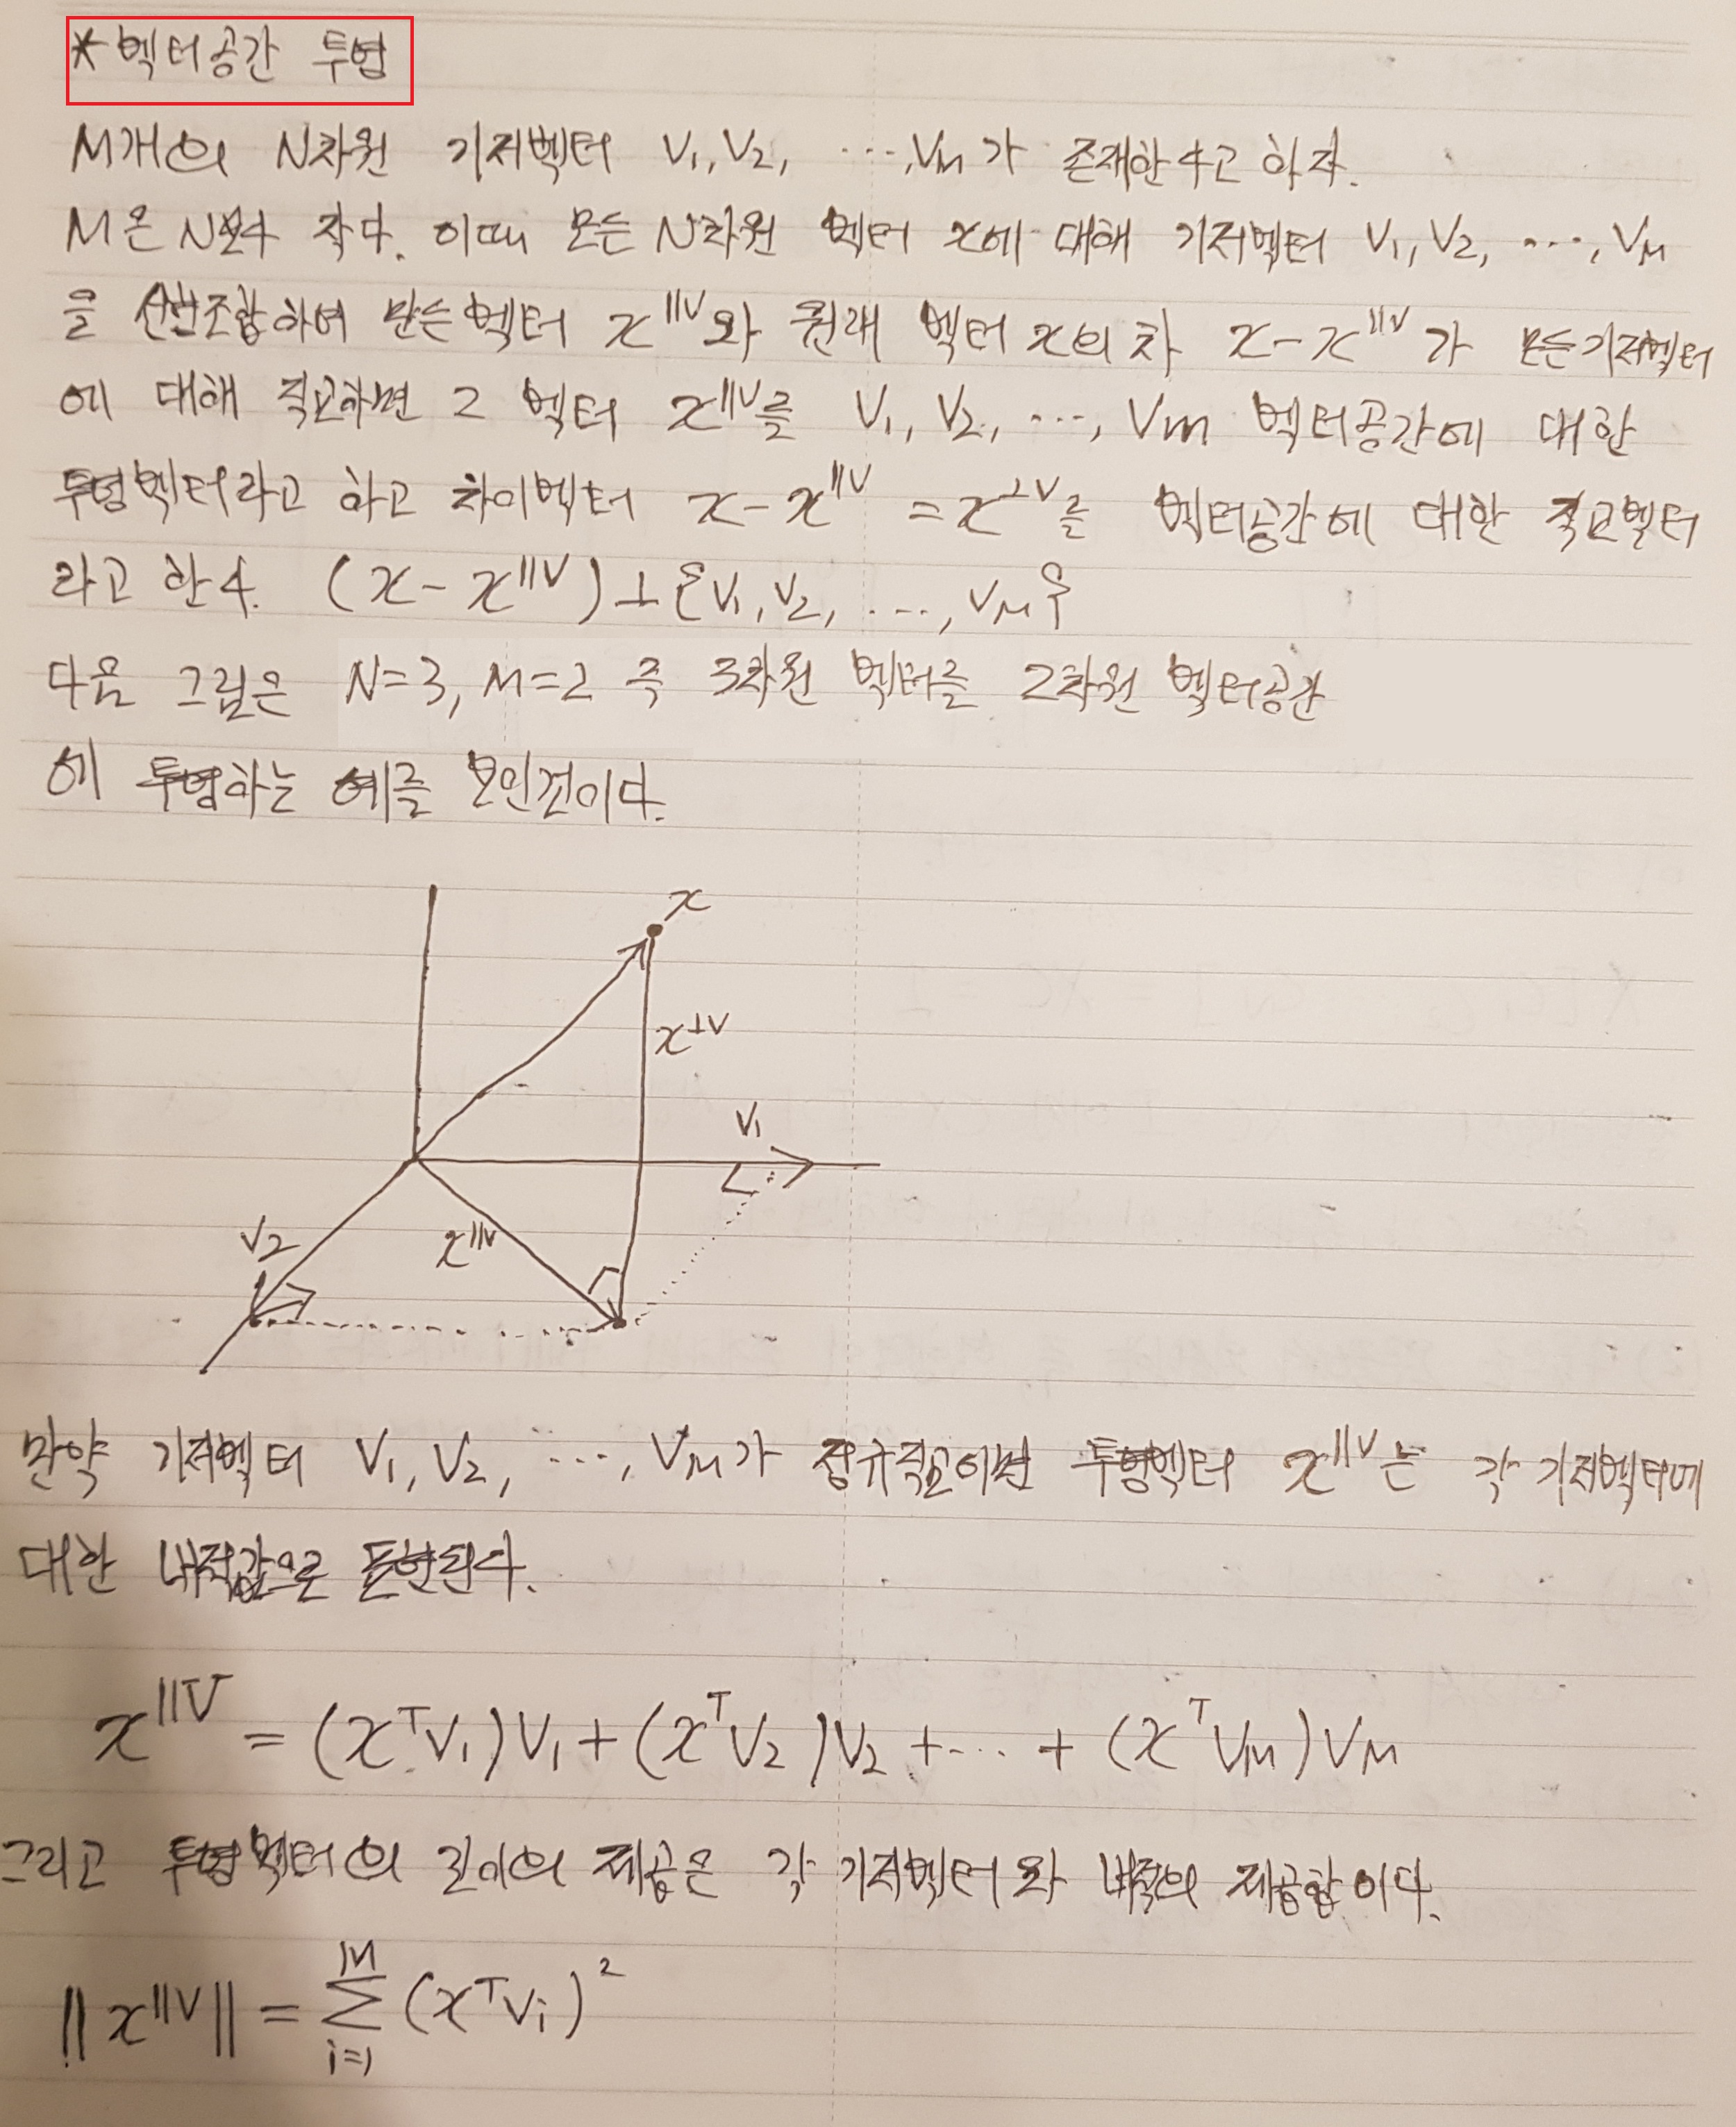 * 벡터공간 투영
M개의 N차원 기저벡터 V₁, V₂, ⋯, Vₘ가 존재한다고 하자.
M은 N보다 작다. 이때 모든 N차원 벡터 x에 대해 기저벡터 V₁, V₂, ⋯, Vₘ
을 선현조합하여 만든 벡터 x^∥V와 원래 벡터 x의 차 x - x^∥V가 모든 기저벡터
에 대해 직교하면 그 벡터 x^∥V를 V₁, V₂, ⋯, Vₘ 벡터공간에 대한
투영벡터라고 하고 차이벡터 x - x^∥V = x^⊥V를 벡터공간에 대한 직교벡터
라고 한다. (x - x^∥V) ⊥ {V₁, V₂, ⋯, Vₘ}
다음 그림은 N=3, M=2 즉 3차원 벡터를 2차원 벡터공간
에 투영하는 예를 보인것이다.
x
x^⊥V
V₁
V₂
x^∥V
만약 기저벡터 V₁, V₂, ⋯, Vₘ가 정규직교이면 투영벡터 x^∥V는 각 기저벡터에
대한 내적값으로 표현된다.
x^∥V = (xᵀV₁)V₁ + (xᵀV₂)V₂ + ⋯ + (xᵀVₘ)Vₘ
그리고 투영벡터의 길이의 제곱은 각 기저벡터와 내적의 제곱합이다.
||x^∥V|| = Σ_{i=1}^{M} (xᵀVᵢ)²